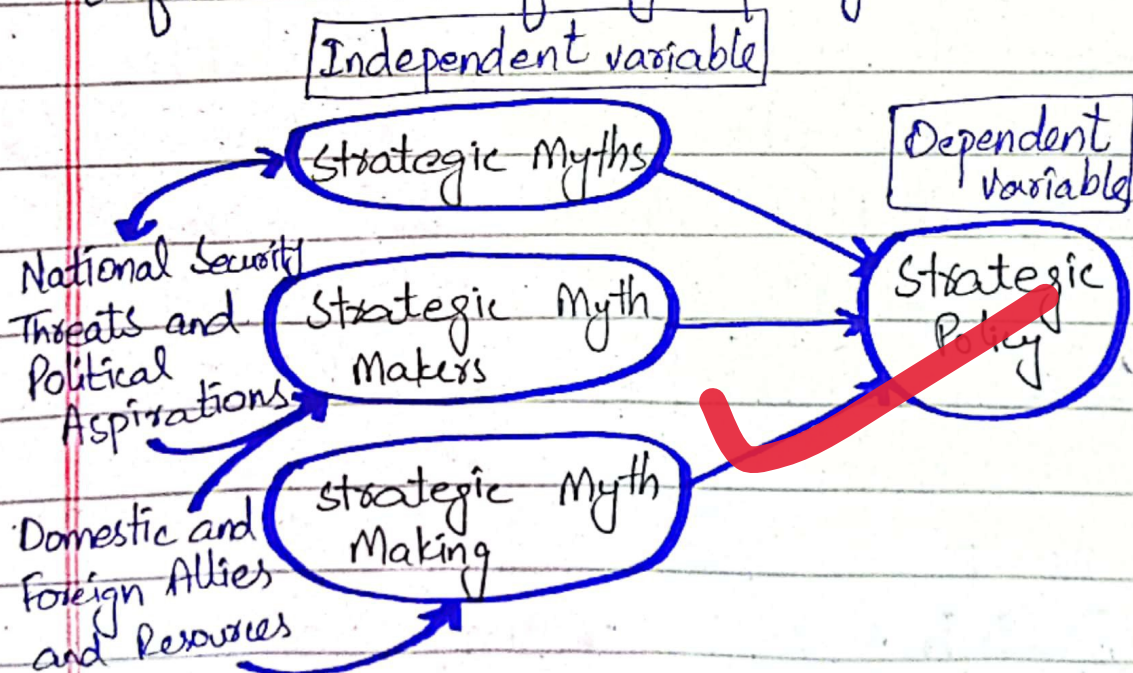 Independent variable
Strategic Myths
Dependent
variable
National Security
Threats and
Political
Aspirations
Strategic Myth
Makers
Strategic
Policy
Domestic and
Foreign Allies
and Resources
Strategic Myth
Making